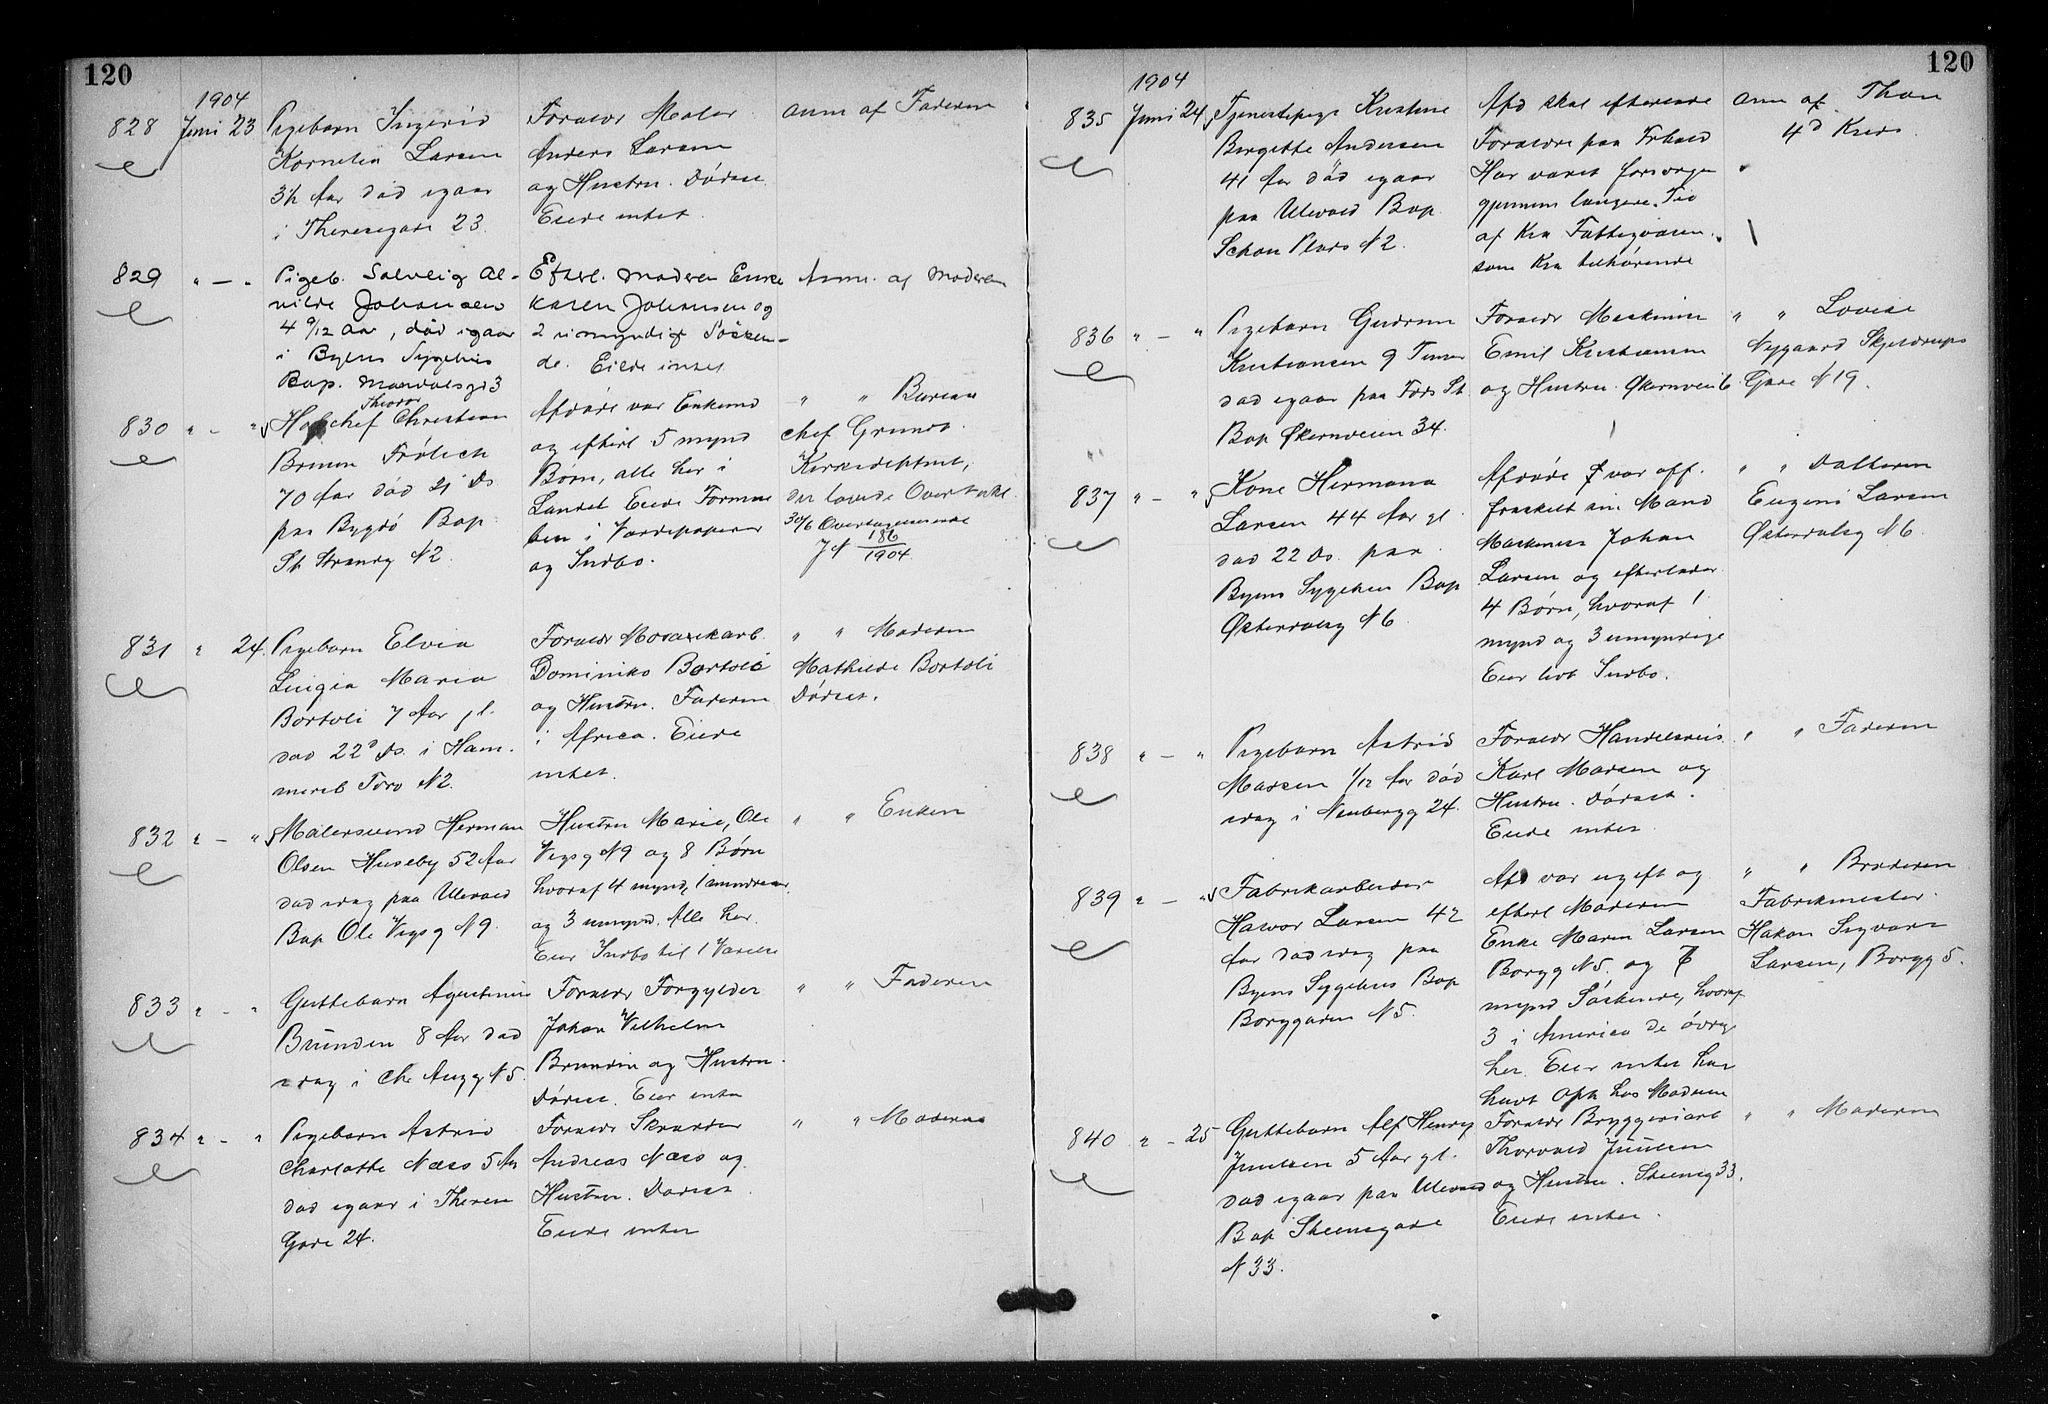 120
1904
828 Juni 23 Pigebarn Ingerid
Kornelia Larsen
3½ Aar død igaar
i Theresegade 23.
Forældr Maler
Anders Larsen
og Hustru. Dødsst.
Eiede intet.
Anm af Faderen
829 " — " Pigeb. Solveig Al-
vilde Johansen
4 9/12 Aar, død igaar
i Byens Sygehus
Bop. Mandalsgd 3
Efterl. Moderen Enke
Karen Johansen og
2 umyndige Søsken-
de. Eiede intet.
Anm. af Moderen
830 " — " Theodor
Hofchef Christian
Bruun Frölich
70 Aar død 21 Ds
paa Bygdö Bop
St Strandg N2.
Afdøde var Enkemd
og efterl 5 mynd
Børn, alle her i
Landet Eiede Formue
ben i Værdipapirer
og Indbo.
" " Bureau
chef Grundt.
Kirkedeptmt,
der lovede Overtakl.
30/6 Overtagensende
J N 186/1904
831 " 24. Pigebarn Elvia
Luigia Maria
Bortoli 7 Aar gl.
død 22d Ds. i Ham-
mersb Torv N2.
Forældr Mosaikarb.
Dominiko Bortoli
og Hustru. Faderen
i Africa. Eiede
intet.
" " Moderen
Mathilde Bortoli
Dødsst.
832 " — " Malersvend Herman
Olsen Huseby 52 Aar
død idag paa Ulevold
Bop Ole Vigsg N9.
Hustru Marie, Ole
Vigsg N9 og 8 Børn
hvoraf 4 mynd, 1 mindreaar.
og 3 umynd. Alle her.
Eier Indbo til 1 Værelse
" " Enken
833 " — " Guttebarn Agustinus
Brunden 8 Aar død
idag i Chr Augg N5.
Forældr Forgylder
Johan Vilhelm
Brundin og Hustru.
Dødsst. Eier intet
" " Faderen
834 " — " Pigebarn Astrid
Charlotte Næss 5 Aar
død igaar i Therese
Gade 24.
Forældr Skrædder
Andreas Næss og
Hustru. Dødsst.
Eiede intet
" " Moderen
120
1904
835 Juni 24 Tjenestepige Kristine
Birgitte Andersen
41 Aar død igaar
paa Ulevold Bop
Schous Plads N2.
Afd skal efterlade
Forældre paa
Har været forsørge
gjennem længere Tid
af Kra Fattigvæsen.
som Kra tilhørende
Anm af Thon
4d Kreds
836 " — " Pigebarn Gudrun
Kristiansen 9 Timer
død igaar paa Føds St
Bop Økernveien 34.
Forældr Maskinist
Emil Kristiansen
og Hustru. Økernvei
" " Lovise
Nygaard Skjeldrups
Gade N19.
837 " — " Kone Hermana
Larsen 44 Aar gl.
død 22 Ds. paa
Byens Sygehus Bop
Østerdalsg N6.
Afdøde var off.
fraskilt sin Mand
Maskinist Johan
Larsen og efterlader
4 Børn, hvoraf 1
mynd og 3 umyndige
Eier lidt Indbo.
" " Datteren
Eugeni Larsen
Østerdalsg N6.
838 " — " Pigebarn Astrid
Madsen 1/12 Aar død
idag i Neubergg 24.
Forældr Handelsreis.
Karl Madsen og
Hustru. Dødsst.
Eiede intet.
" " Faderen
839 " — " Fabrikarbeider
Hawor Larsen 42
Aar død idag paa
Byens Sygehus Bop
Borggaden N5.
Afd var ugift og
efterl Moderen
Enke Maren Larsen
Borgg N5. og 7
mynd Søskende, hvoraf
3 i America de øvrige
her. Eier intet har
havt Oph hos Moderen
" " Broderen
Fabrikmester
Hakon Sigvard
Larsen, Borgg 5.
840 " — 25 Guttebarn Alf Henry
Juulsen 5 Aar gl.
død igaar paa Ulevold
Bop Steensgade
N 33.
Forældr Bryggeriarb
Thorvald Juulsen
og Hustru. Steensg 33.
Eiede intet.
" " Moderen